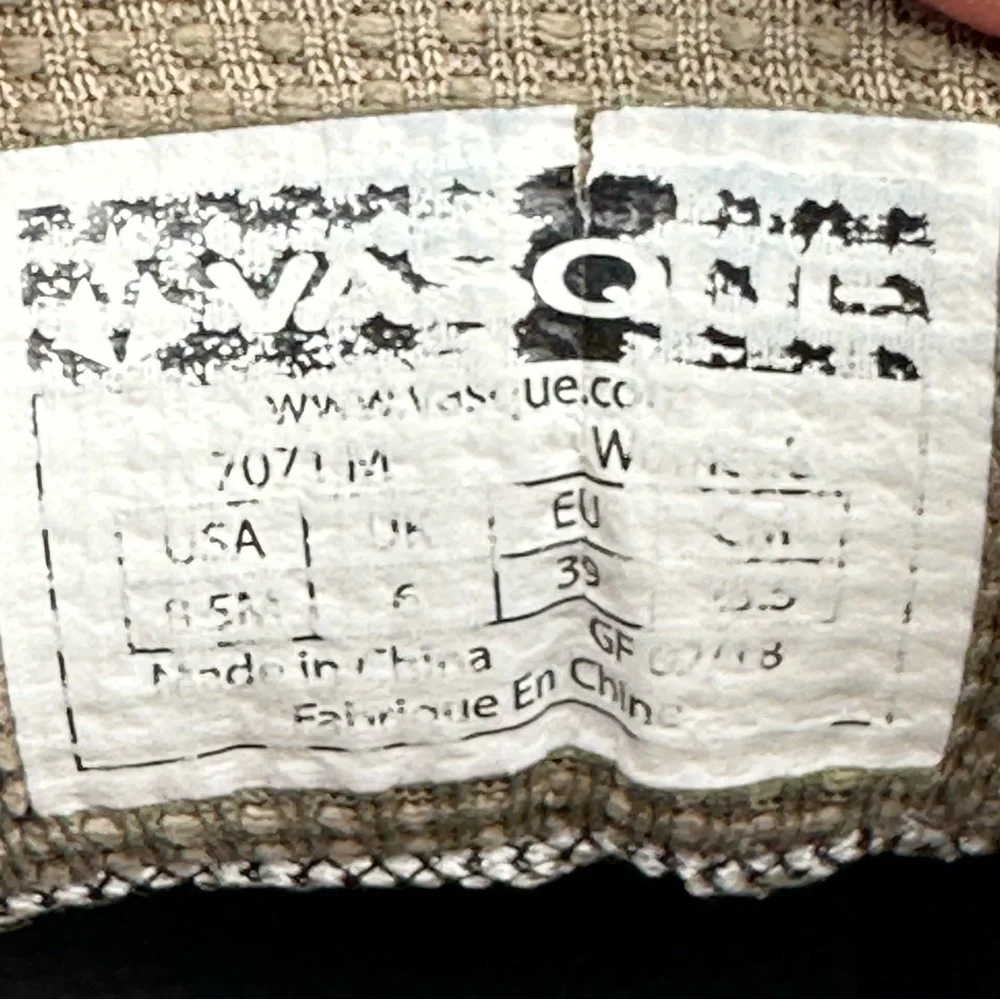 VASQUE
www.vasque.co
7071 M W
USA UK EU cm
8.5M 6 39
Made in China GF
Fabrique En Chine